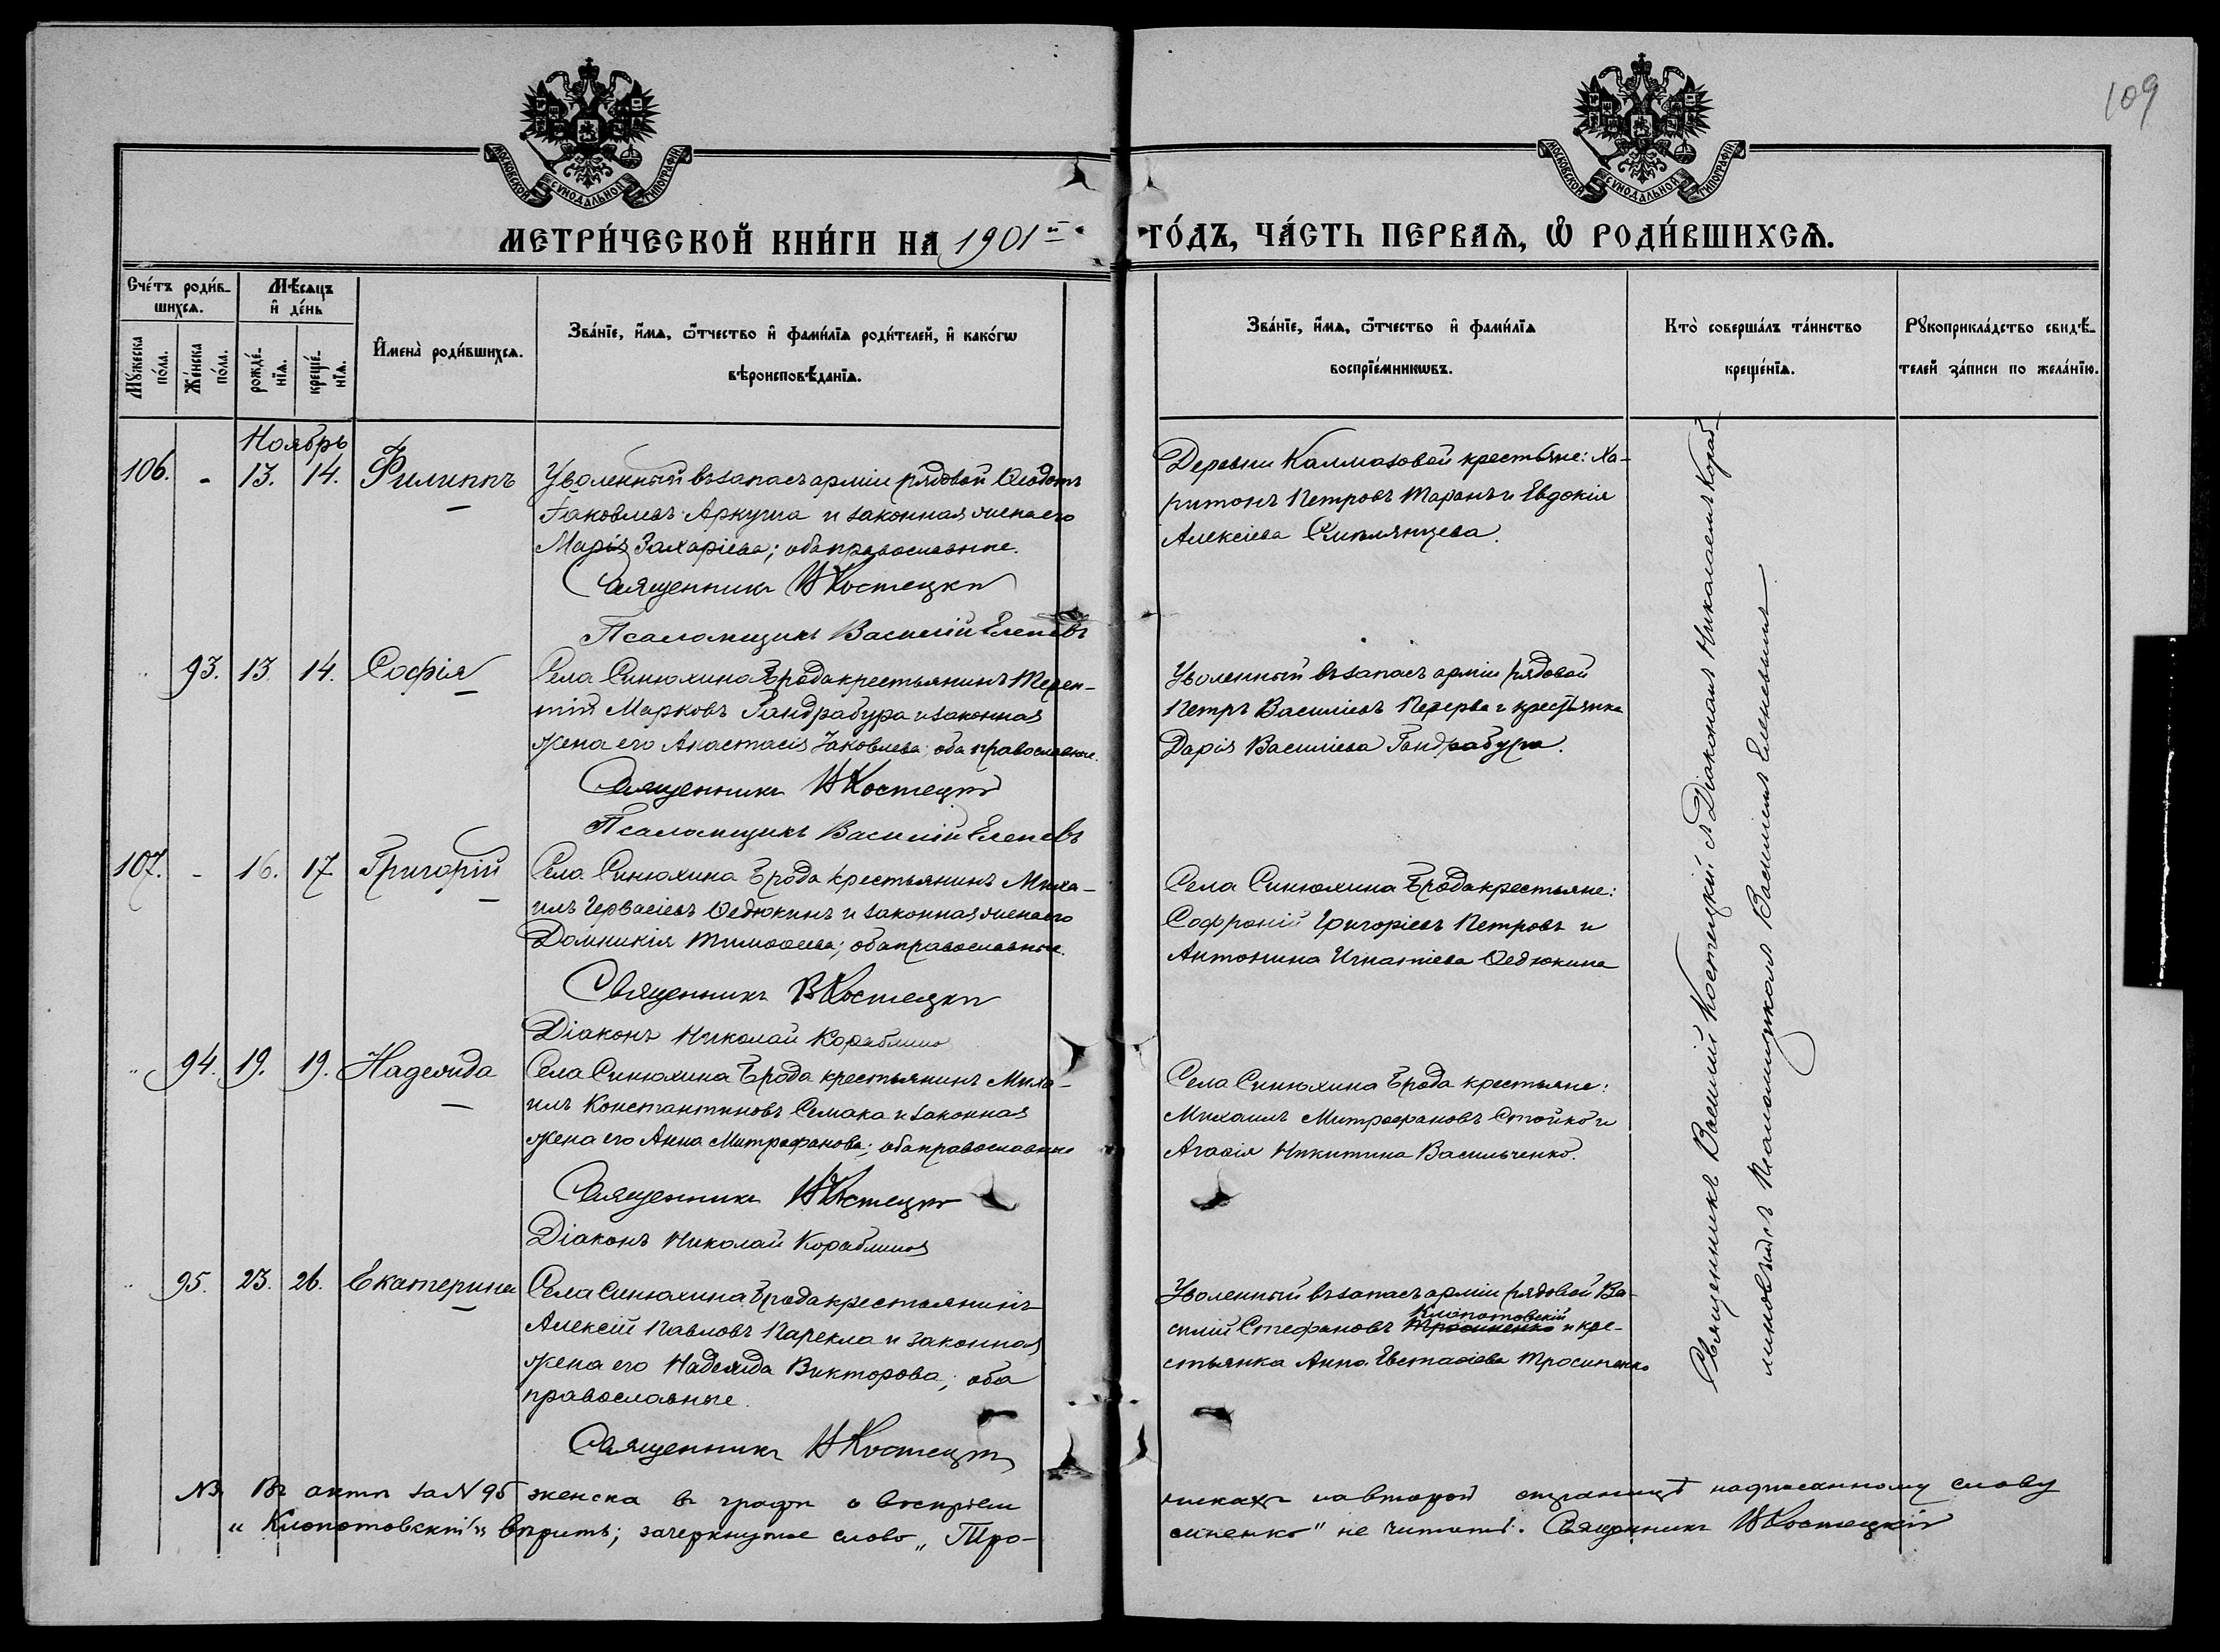 109
МОСКОВСКОЙ СѴНОДАЛЬНОЙ ТИПОГРАФІИ
МОСКОВСКОЙ СѴНОДАЛЬНОЙ ТИПОГРАФІИ
МЕТРИ́ЧЕСКОЙ КНИ́ГИ НА 1901й ГО́ДЪ, ЧА́СТЬ ПЕРВАѦ, Ѡ РОДИ́ВШИХСѦ.
Сче́тъ роди́в-
шихсѧ.
Мꙋ́жеска по́ла.
Же́нска по́ла.
Мѣ́сяцъ
и҆ де́нь
рожде́-
нїѧ.
креще́-
нїѧ.
И҆мена̀ роди́вшихсѧ.
Зва́нїе, и҆́мѧ, ѻ҆́тчество и҆ фами́лїѧ роди́телей, и҆ како́гѡ
вѣроисповѣ́данїѧ.
Зва́нїе, и҆́мѧ, ѻ҆́тчество и҆ фами́лїѧ
воспрїе́мникѡвъ.
Кто̀ соверша́лъ та́инство
креще́нїѧ.
Рꙋкоприкла́дство свидѣ́-
телей за́писи по жела́нїю.
Ноябрь
106. - 13. 14. Филиппъ
Уволенный въ запасъ арміи рядовой Ѳеодотъ
Іаковлевъ Аркуша и законная жена его
Марія Захаріева; оба православные.
Священникъ В Костецкій
Псаломщикъ Василій Еленевъ
Деревни Калмазовой крестьяне: Ха-
ритонъ Петровъ Таранъ и Евдокія
Алексіева
" 93. 13. 14. Софія
Села Синюхина Брода крестьянинъ Терен-
тій Марковъ Гандрабура и законная
жена его Анастасія Іаковлева; оба православные.
Священникъ В Костецкій
Псаломщикъ Василій Еленевъ
Уволенный въ запасъ арміи рядовой
Петръ Василіевъ Перерва и крестьянка
Дарія Василіева Гандрабура.
107. - 16. 17 Григорій
Села Синюхина Брода крестьянинъ Миха-
илъ Гервасіевъ Ѳедюкинъ и законная жена его
Домникія Тимоѳеева; оба православные.
Священникъ В Костецкій
Діаконъ Николай Кораблиновъ
Села Синюхина Брода крестьяне:
Софроній Григоріевъ Петровъ и
Антонина Игнатіева Ѳедюкина
" 94. 19. 19. Надежда
Села Синюхина Брода крестьянинъ Миха-
илъ Константиновъ Семака и законная
жена его Анна Митрофанова; оба православные
Священникъ В Костецкій
Діаконъ Николай Кораблиновъ
Села Синюхина Брода крестьяне:
Михаилъ Митрофановъ Стойко и
Агаѳія Никитина Васильченко.
" 95. 23. 26. Екатерина
Села Синюхина Брода крестьянинъ
Алексій Павловъ Парекла и законная
жена его Надежда Викторова; оба
православные.
Священникъ В Костецкій
Уволенный въ запасъ арміи рядовой Ва-
Клопотовскій
силій Стефановъ Тросиненко и кре-
стьянка Анна Евстаѳіева Тросиненко
Священникъ Василій Костецкій съ Діакономъ Николаемъ Кораб-
линовымъ и Псаломщикомъ Василіемъ Еленевымъ
NВ. Въ актѣ за № 95 женска въ графѣ о воспріем никахъ на второй страницѣ надписанному слову
„Клопотовскій" вѣрить; зачеркнутое слово „Тро- синенко" не читать. Священникъ В Костецкій